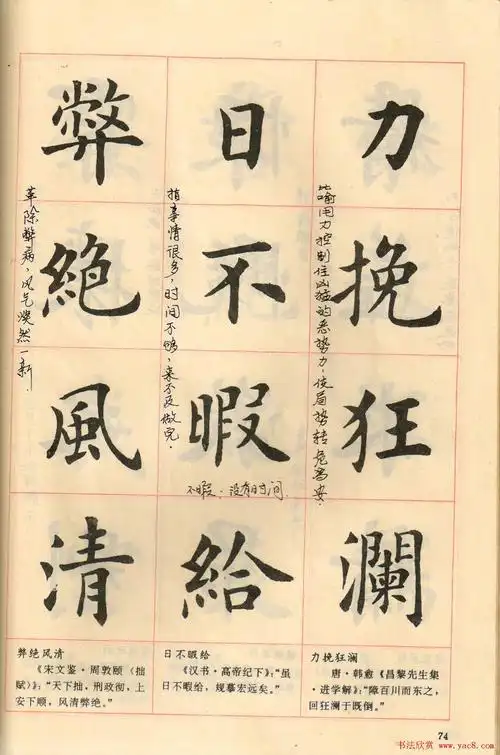 力挽狂瀾
比喻用力控制住凶猛的恶势力，使局势转危为安．
日不暇給
指事情很多，时间不够，来不及做完．
不暇：没有时间．
弊絶風清
革除弊病，风气焕然一新．
弊绝风清
《宋文鉴·周敦颐（拙
赋）》：“天下拙，刑政彻，上
安下顺，风清弊绝。”
日不暇给
《汉书·高帝纪下》：“虽
日不暇给，规摹宏远矣。”
力挽狂澜
唐·韩愈《昌黎先生集
·进学解》：“障百川而东之，
回狂澜于既倒。”
74
书法欣赏 www.yac8.com